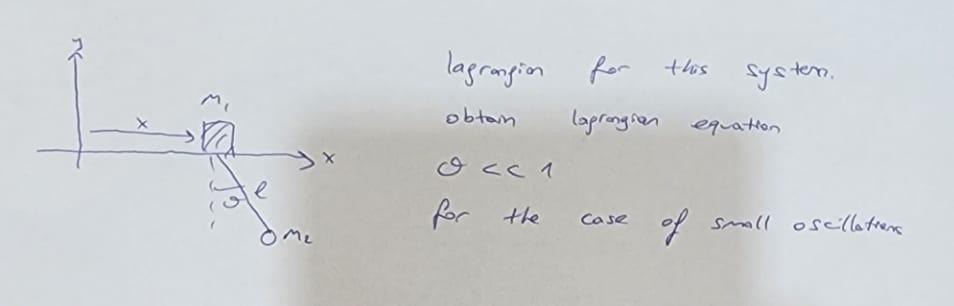 y
M₁
x
x
θ
l
M₂
lagrangian for this system.
obtain laprongian equation
θ << 1
for the case of small oscillations